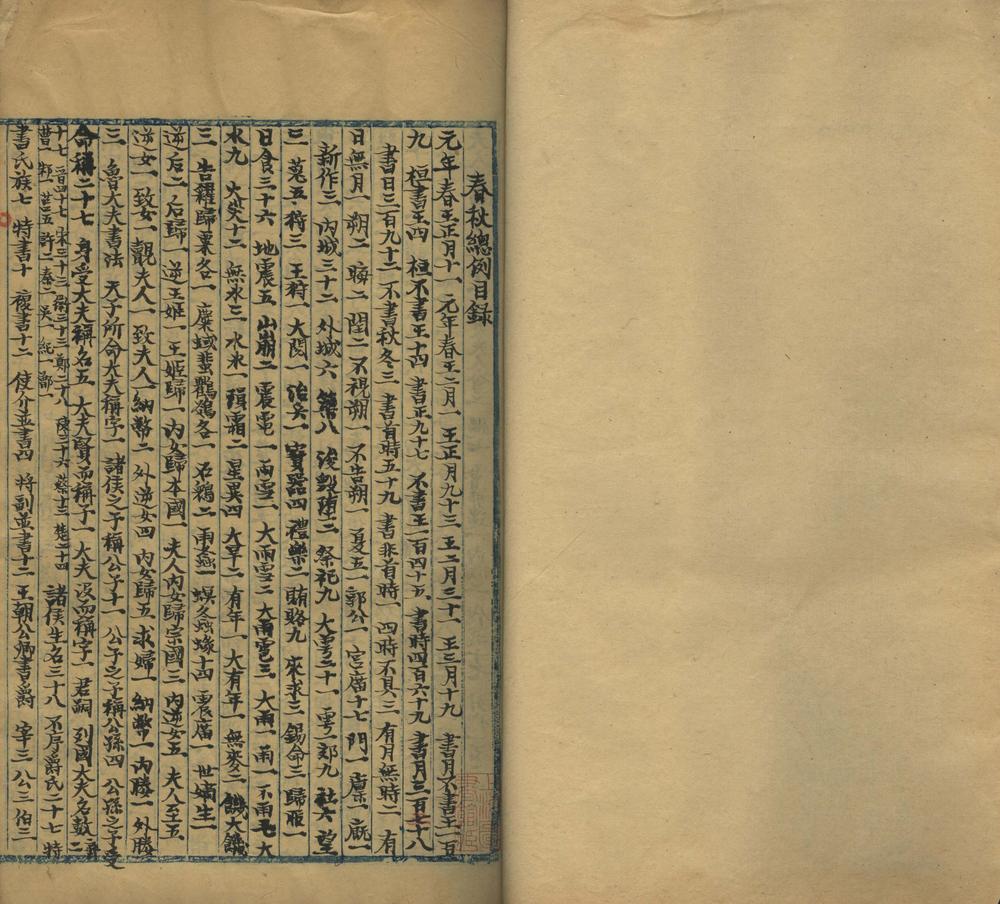 春秋總例目錄
元年春王正月十一 元年春王二月一 王正月九十三 王二月二十一 王三月十九 書月不書王一百
九 桓書王四 桓不書王十四 書正九十七 不書王一百四十五 書時四百六十九 書月三百七十八
書日三百九十二 不書秋冬三 書首時五十九 書非首時一 四時不具三 有月無時二 有
日無月一 朔二 晦二 閏二 不視朔一 不告朔一 夏五一 郭公一 宮廟十七 門一 廩一 廐一
新作三 內城三十二 外城六 築八 浚毀墮三 祭祀九 大雩二十一 雩一 郊九 社六 望
三 蒐五 狩三 王狩一 大閱一 治兵一 寶器四 禮樂二 賄賂九 來求三 錫命三 歸脤一
日食三十六 地震五 山崩二 震電一 雨雪一 大雨雪三 大雨雹三 大雨一 雨一 不雨七 大
水九 火災十二 無氷三 水氷一 隕霜二 星異四 大旱二 有年一 大有年一 無麥二 饑大饑
三 告糴歸粟各一 麋蜮蜚鸛鵒各一 石鶂二 雨螽一 螟螽蝝十四 震廟一 世嫡生一
逆后二 后歸一 逆王姬一 王姬歸一 內女歸本國一 夫人內女歸宗國三 內逆女五 夫人至五
逆女一 致女一 覿夫人一 致夫人一 納幣二 外逆女四 內女歸五 求婦一 納幣一 內媵一 外媵
三 魯大夫書法 天子所命大夫稱字一 諸侯之子稱公子十一 公子之子稱公孫四 公孫之子受
命稱二十七 身受大夫稱名五 大夫賢而稱子一 大夫沒而稱字一 君嗣 列國大夫名數
十七 晋四十七 宋三十三 衛三十三 鄭二十八 陳二十六 蔡十三 楚二十四
曹一 莒五 許二 秦二 吴一 紀一 鄫一 諸侯生名三十八 不序爵氏二十七 特
書氏族七 特書十 複書十二 使介並書四 將副並書十二 王朝公卿書爵 宰三 公三 伯二